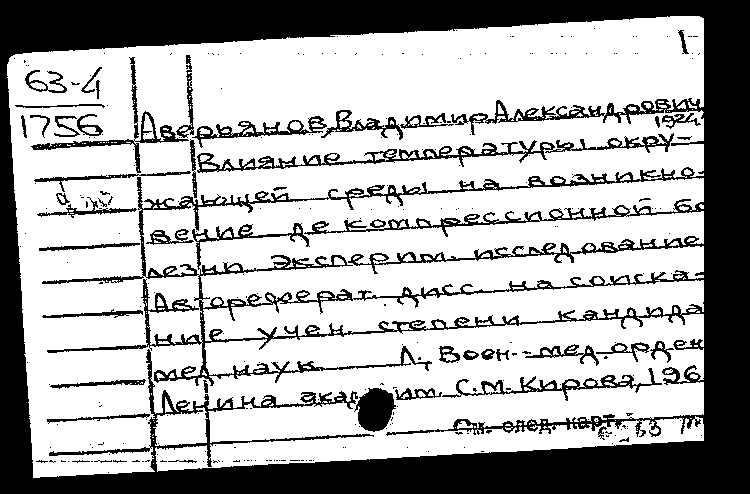 63-4
1756
Аверьянов, Владимир Александрович
1924
Влияние температуры окру-
жающей среды на возникно-
вение декомпрессионной бо
лезни эксперим. исследование
Автореферат дисс. на соиска-
ние учен. степени кандида
мед. наук Л., Воен.-мед. орден
Ленина акад им. С.М. Кирова, 196
См. след. карт.